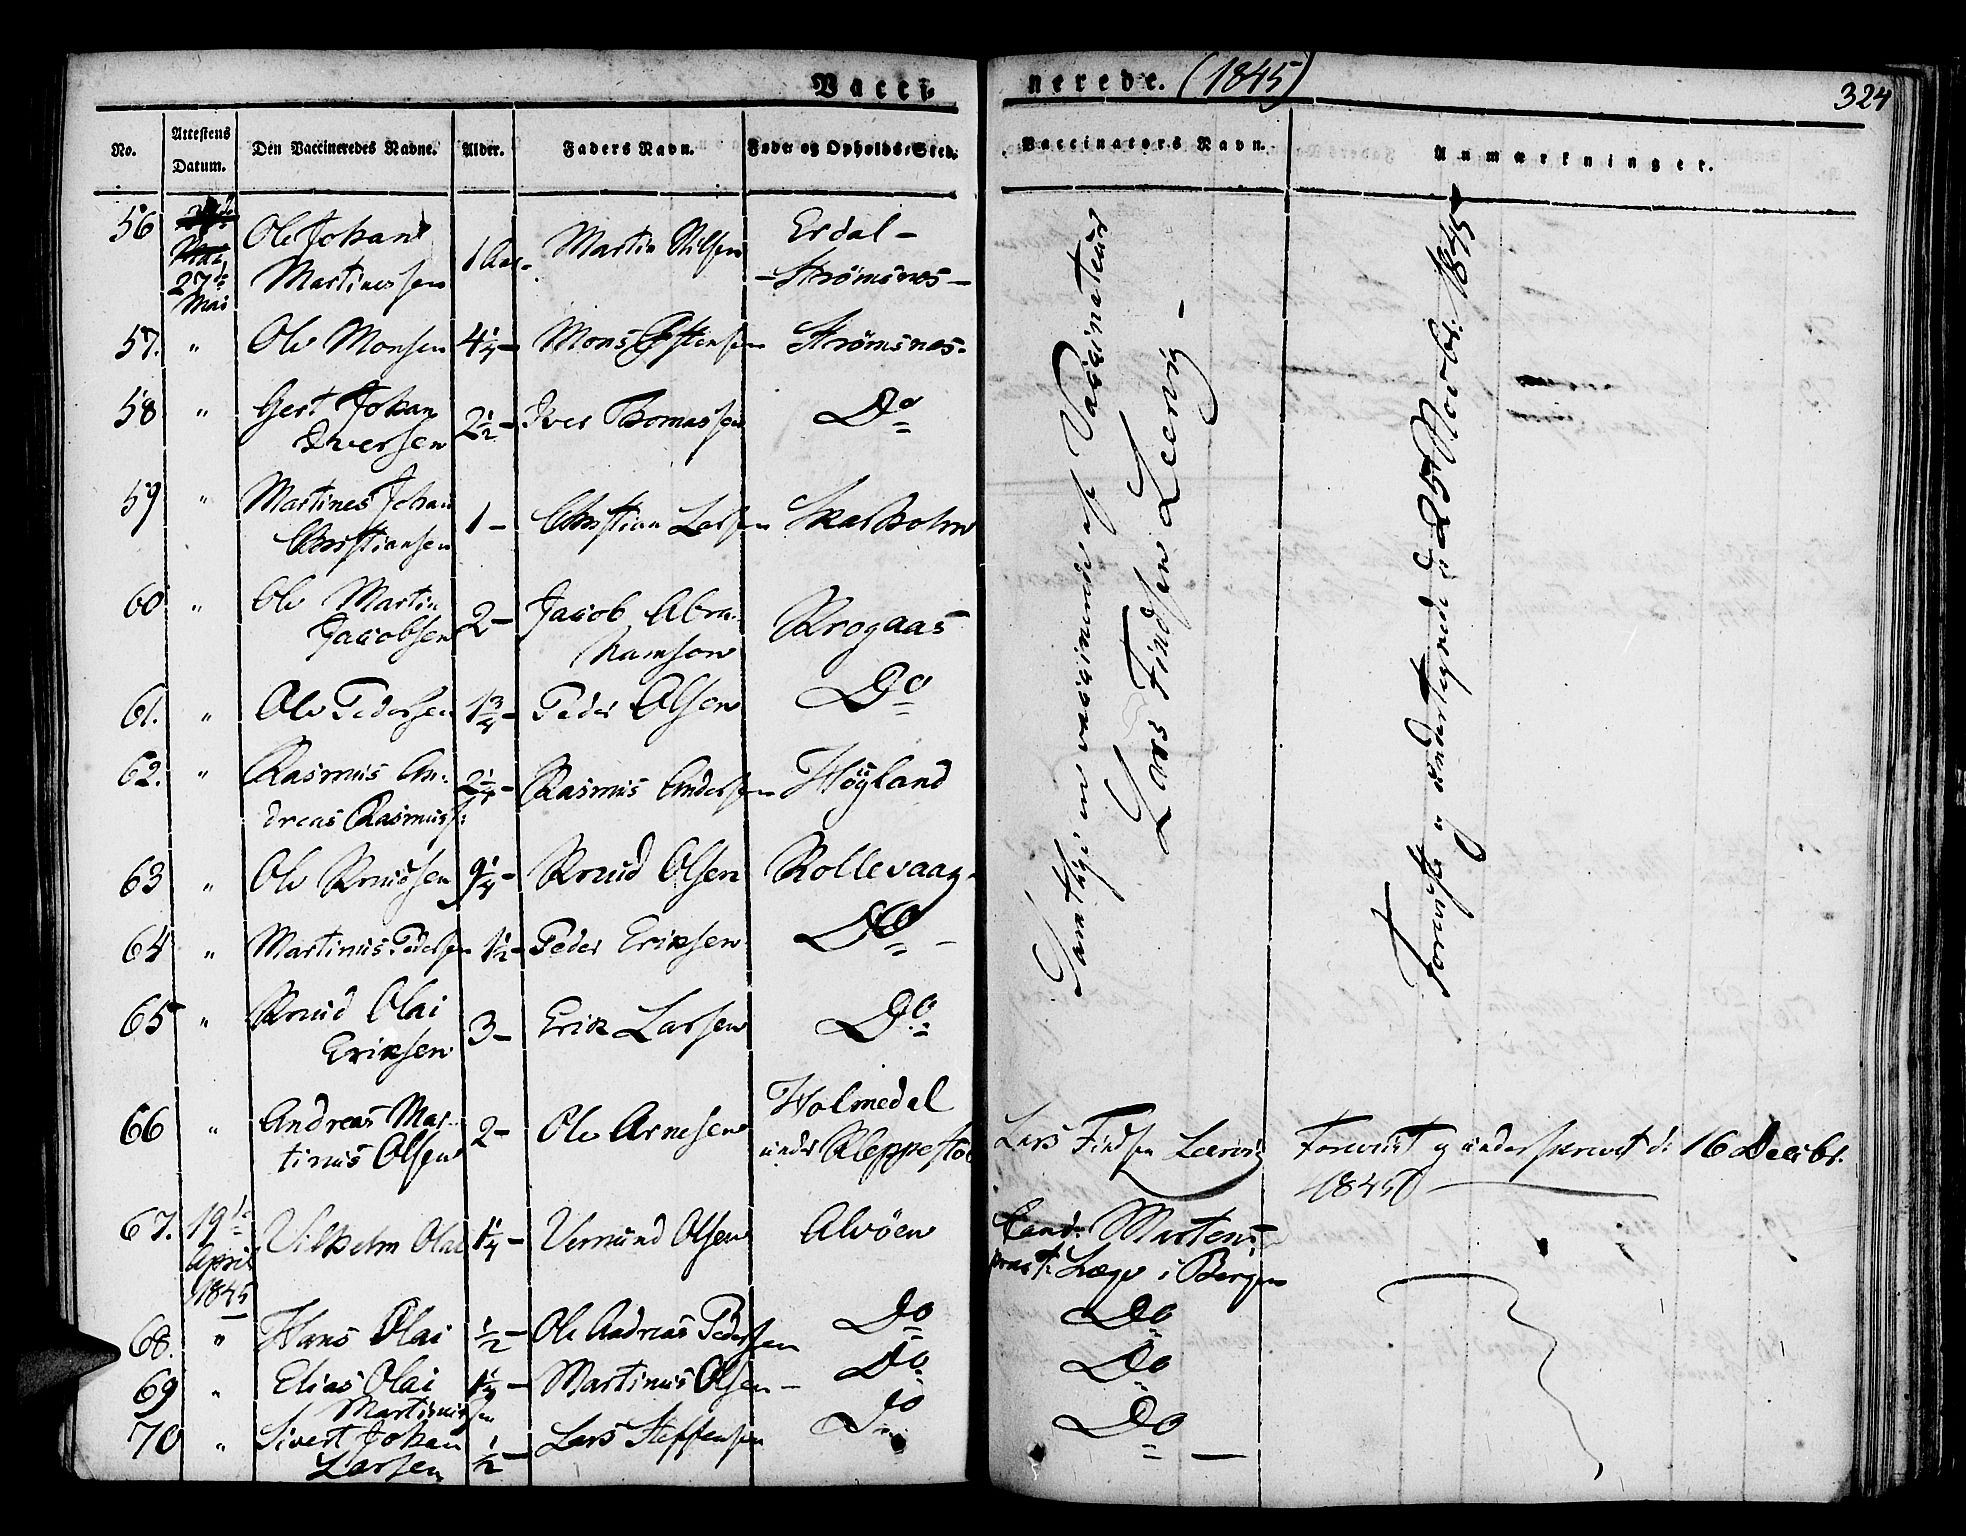 Vacci-
nerede. (1845)
324
No. Attestens Datum. Den Vaccineredes Navne. Alder. Faders Navn. Føde- og Opholds-Sted. Vaccinators Navn. Anmærkninger.
56 27de Mai Ole Johan Martinussen 1 Aar- Martin Nilsen Erdal - - Strømsnes -
57. " Ole Monsen 4 1/4 - Mons Strømsnes-
58 " Gert Johan Iversen 2 1/2 - Iver Thomassen Do
59 " Martines Johan Christiansen 1 - Christian Larsen Skarholm
60 " Ole Martin Jacobsen 2 - Jacob Abrahamson Krogaas
61. " Ole Pedersen 1 3/4 - Peder Olsen Do
62. " Rasmus Andreas Rasmuss: 2 1/4 - Rasmus Andersen Høyland
63 " Ole Knudsen 9 1/4 - Knud Olsen Rollevaag-
64 " Martinus Pedersen 1 1/2 - Peder Eriksen Do -
65 " Knud Olai Eriksen 3 - Erik Larsen Do
66 " Andreas Martinus Olsen 2 - Ole Arnesen Holmedal under Kleppestø Lars Findsen Leervig Foreviist og underskrevet d: 16 Decbr. 1845
67. 19de April 1845 Vilhelm Olai 1 1/4 - Vemund Olsen Alvøen Cand: Martens pract: Læge i Bergen
68. " Hans Olai 1/2 - Ole Andreas Pedersen Do Do
69 " Elias Olai Martinussen 1 1/4 - Martinus Olsen - Do Do
70 " Sivert Johan Larsen 1/2 - Lars Steffensen Do Do -
Samtlige ere vaccinerede af Vaccinateur
Lars Findsen Leervig -
Foreviist og undertegnede d 25 Novbr: 1845